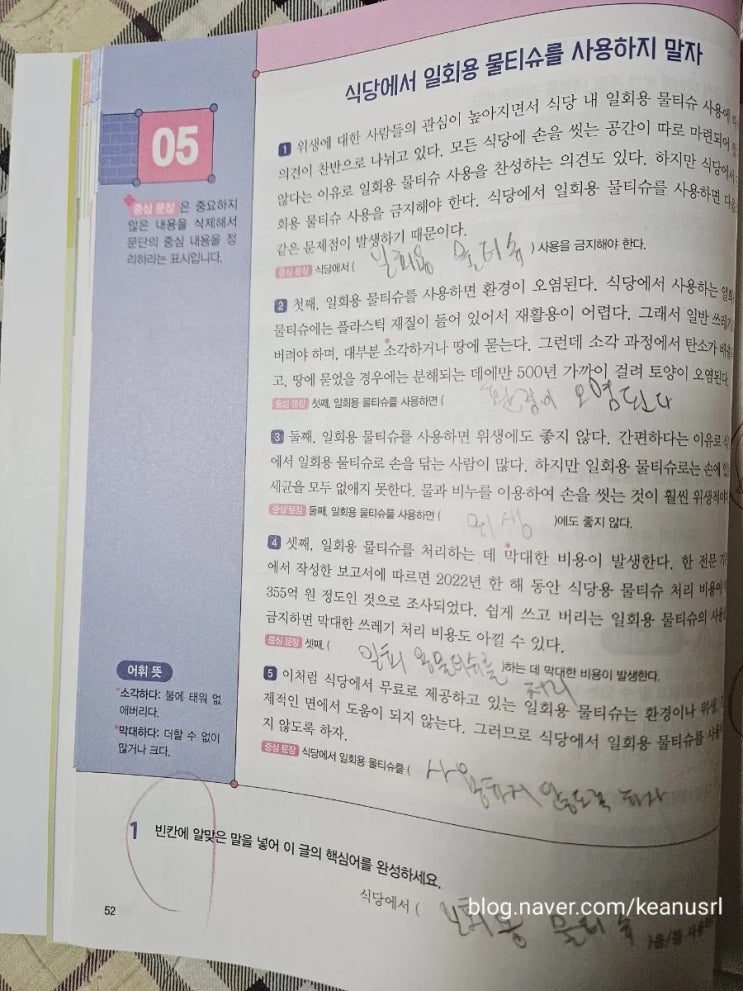 식당에서 일회용 물티슈를 사용하지 말자
05
중심 문장 은 중요하지
않은 내용을 삭제해서
문단의 중심 내용을 정
리하라는 표시입니다.
1 위생에 대한 사람들의 관심이 높아지면서 식당 내 일회용 물티슈 사용에
의견이 찬반으로 나뉘고 있다. 모든 식당에 손을 씻는 공간이 따로 마련되어
않다는 이유로 일회용 물티슈 사용을 찬성하는 의견도 있다. 하지만 식당에서
회용 물티슈 사용을 금지해야 한다. 식당에서 일회용 물티슈를 사용하면
같은 문제점이 발생하기 때문이다.
중심 문장 식당에서 ( 일회용 물티슈 ) 사용을 금지해야 한다.
2 첫째, 일회용 물티슈를 사용하면 환경이 오염된다. 식당에서 사용하는
물티슈에는 플라스틱 재질이 들어 있어서 재활용이 어렵다. 그래서 일반
버려야 하며, 대부분 *소각하거나 땅에 묻는다. 그런데 소각 과정에서 탄소가
고, 땅에 묻었을 경우에는 분해되는 데에만 500년 가까이 걸려 토양이 오염된다.
중심 문장 첫째, 일회용 물티슈를 사용하면 ( 환경이 오염된다
3 둘째, 일회용 물티슈를 사용하면 위생에도 좋지 않다. 간편하다는 이유로
에서 일회용 물티슈로 손을 닦는 사람이 많다. 하지만 일회용 물티슈로는 손에
세균을 모두 없애지 못한다. 물과 비누를 이용하여 손을 씻는 것이 훨씬
중심 문장 둘째, 일회용 물티슈를 사용하면 ( 위생 )에도 좋지 않다.
4 셋째, 일회용 물티슈를 처리하는 데 *막대한 비용이 발생한다. 한 전문
에서 작성한 보고서에 따르면 2022년 한 해 동안 식당용 물티슈 처리 비용이
355억 원 정도인 것으로 조사되었다. 쉽게 쓰고 버리는 일회용 물티슈의
금지하면 막대한 쓰레기 처리 비용도 아낄 수 있다.
중심 문장 셋째, ( 일회용물티슈를 처리 )하는 데 막대한 비용이 발생한다.
5 이처럼 식당에서 무료로 제공하고 있는 일회용 물티슈는 환경이나 위생,
제적인 면에서 도움이 되지 않는다. 그러므로 식당에서 일회용 물티슈를
지 않도록 하자.
중심 문장 식당에서 일회용 물티슈를 ( 사용하지 않도록 하자
어휘 뜻
*소각하다: 불에 태워 없
애버리다.
*막대하다: 더할 수 없이
많거나 크다.
1 빈칸에 알맞은 말을 넣어 이 글의 핵심어를 완성하세요.
식당에서 ( 일회용 물티슈 )을/를
52
blog.naver.com/keanusrl